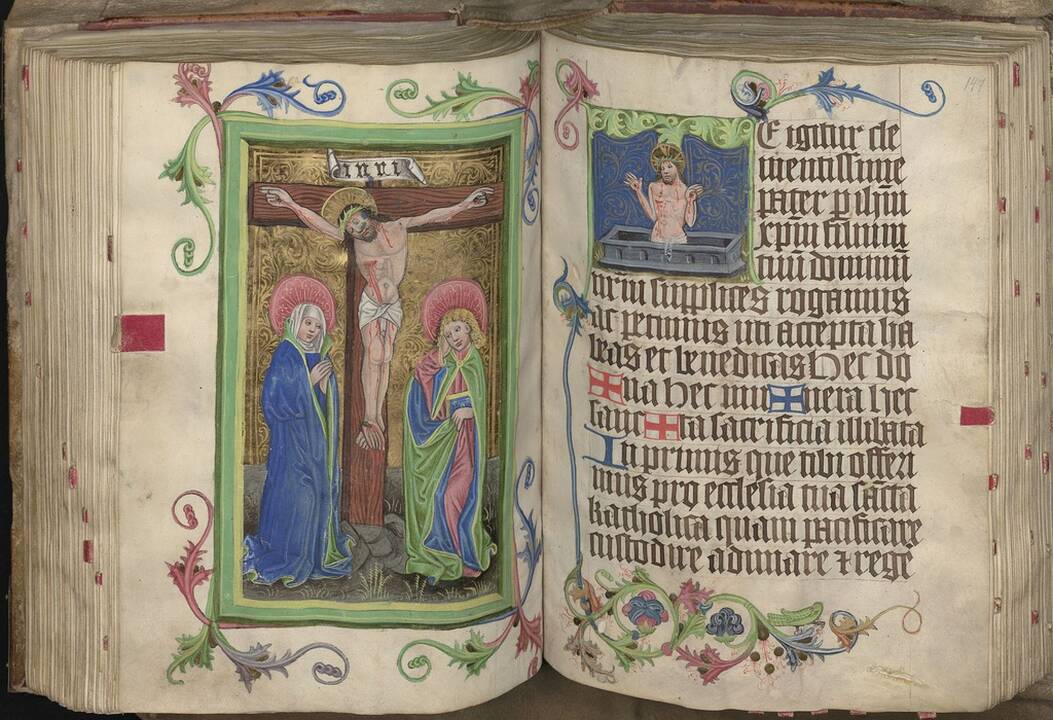 inri
147
E igitur cle
mentissime
pater p ihm̄
xpm̄ filium
tuū dominū
nr̄m supplices rogamus
ac petimus uti accepta ha
beas et benedicas Hec do
✠ na hec mu ✠ nera hec
sanc ✠ ta sacrificia illibata
In primis que tibi offeri
mus pro ecclesia tua sc̄ta
katholica quam pacificare
custodire adunare ⁊ rege